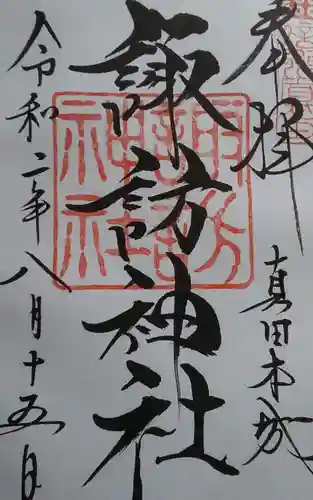 奉拝
真田本城
諏訪神社
令和二年八月十五日
諏訪神社